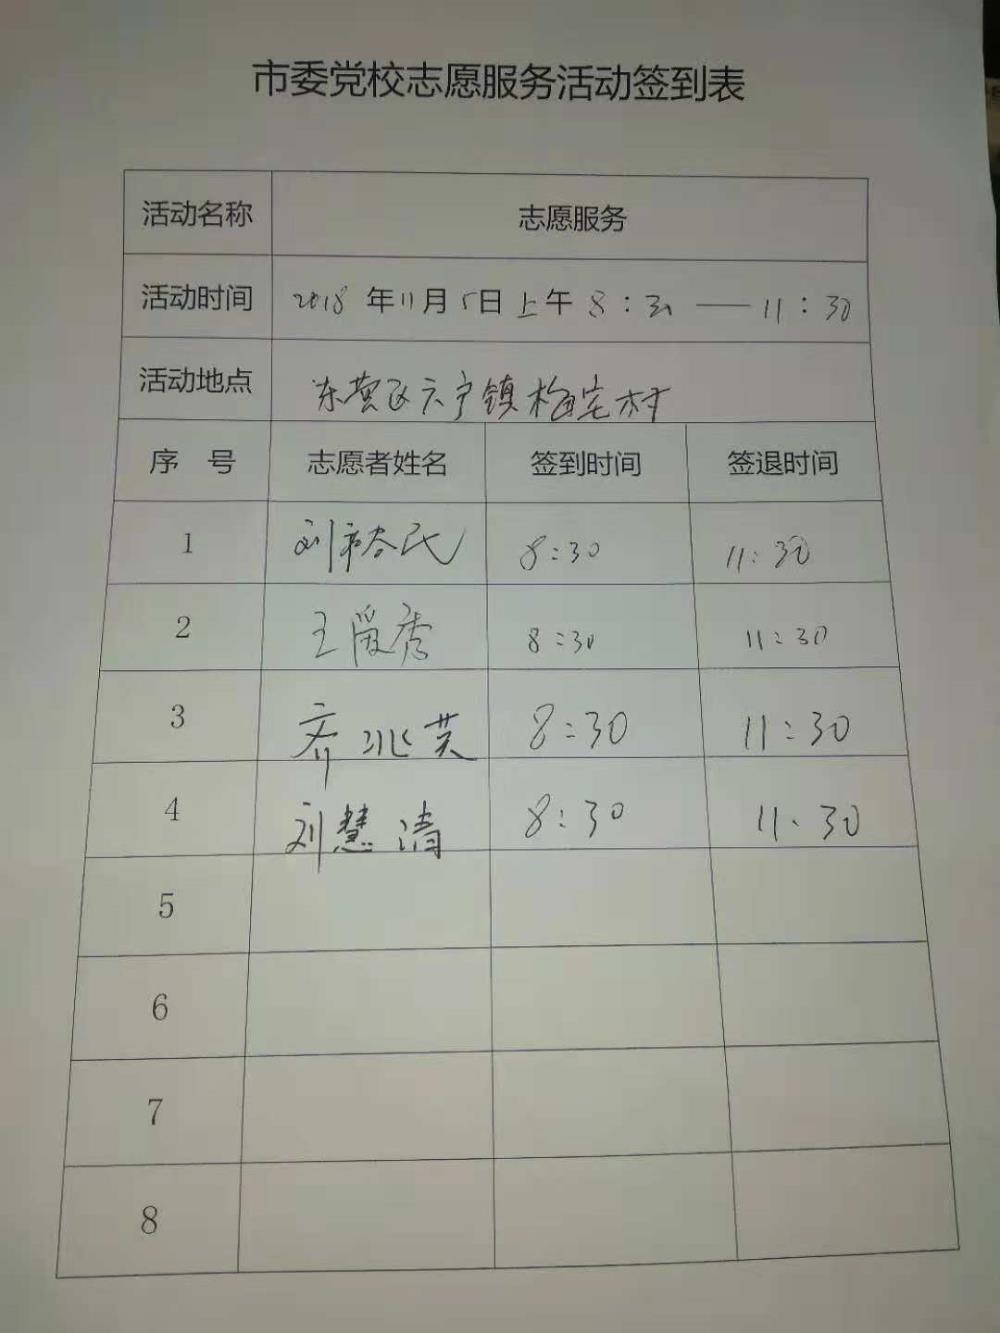 市委党校志愿服务活动签到表
活动名称 志愿服务
活动时间 2018年11月5日上午8:30——11:30
活动地点 东营区六户镇梅宅村
序 号 志愿者姓名 签到时间 签退时间
1 刘 民 8:30 11:30
2 王爱秀 8:30 11:30
3 齐兆芙 8:30 11:30
4 刘慧清 8:30 11:30
5
6
7
8